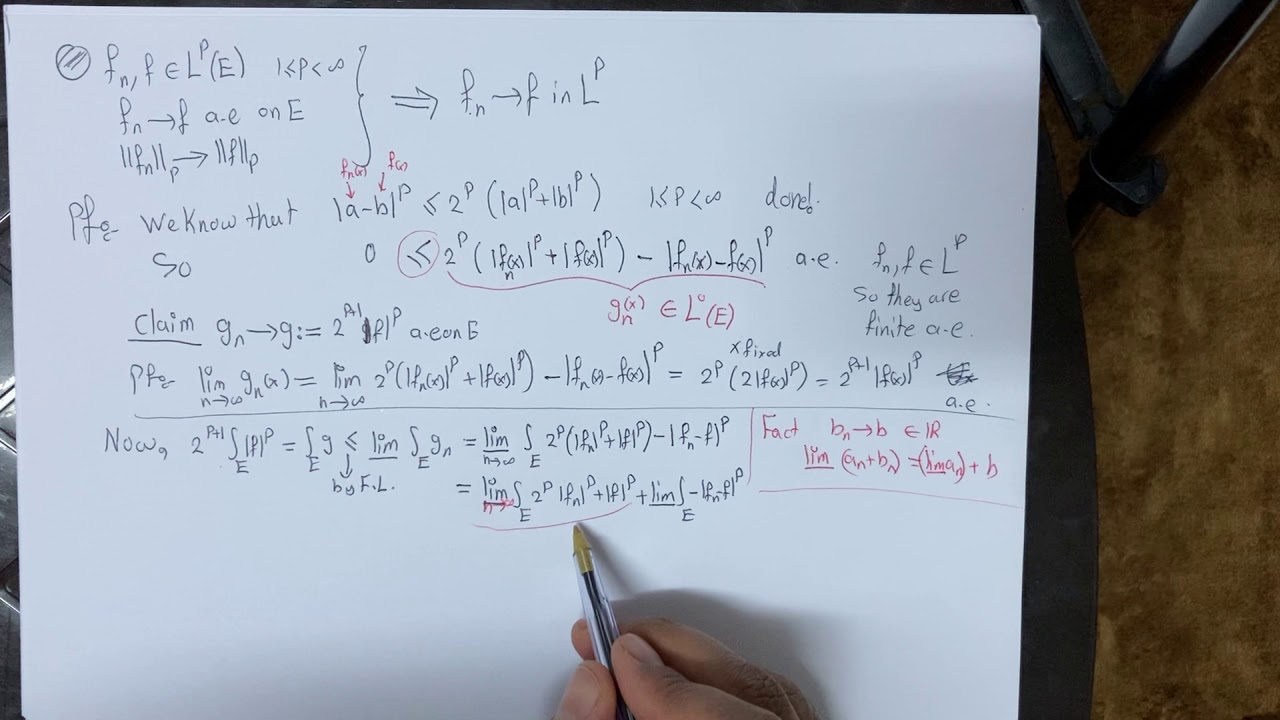 fₙ, f ∈ Lᴾ(E) 1≤P<∞
fₙ → f a.e on E
||fₙ||ₚ → ||f||ₚ
⟹ fₙ → f in Lᴾ
fₙ(x) f(x)
Pf: We Know that |a-b|ᴾ ≤ 2ᴾ (|a|ᴾ+|b|ᴾ) 1≤P<∞ done!
So 0 ≤ 2ᴾ (|fₙ(x)|ᴾ + |f(x)|ᴾ) - |fₙ(x) - f(x)|ᴾ a.e. fₙ, f ∈ Lᴾ
so they are
finite a.e.
gₙ(x) ∈ L°(E)
Claim gₙ → g := 2ᴾ⁺¹ |f|ᴾ a.e on E
x fixed
Pf: lim n→∞ gₙ(x) = lim n→∞ 2ᴾ(|fₙ(x)|ᴾ + |f(x)|ᴾ) - |fₙ(x) - f(x)|ᴾ = 2ᴾ (2|f(x)|ᴾ) = 2ᴾ⁺¹ |f(x)|ᴾ
a.e.
Now, 2ᴾ⁺¹ ∫_E |f|ᴾ = ∫_E g ≤ l̲i̲m̲ ∫_E gₙ = l̲i̲m̲ n→∞ ∫_E 2ᴾ(|fₙ|ᴾ + |f|ᴾ) - |fₙ - f|ᴾ
by F.L.
= l̲i̲m̲ n→∞ ∫_E 2ᴾ |fₙ|ᴾ + |f|ᴾ + l̲i̲m̲ ∫_E -|fₙ-f|ᴾ
Fact bₙ → b ∈ ℝ
l̲i̲m̲ (aₙ+bₙ) = (l̲i̲m̲ aₙ) + b